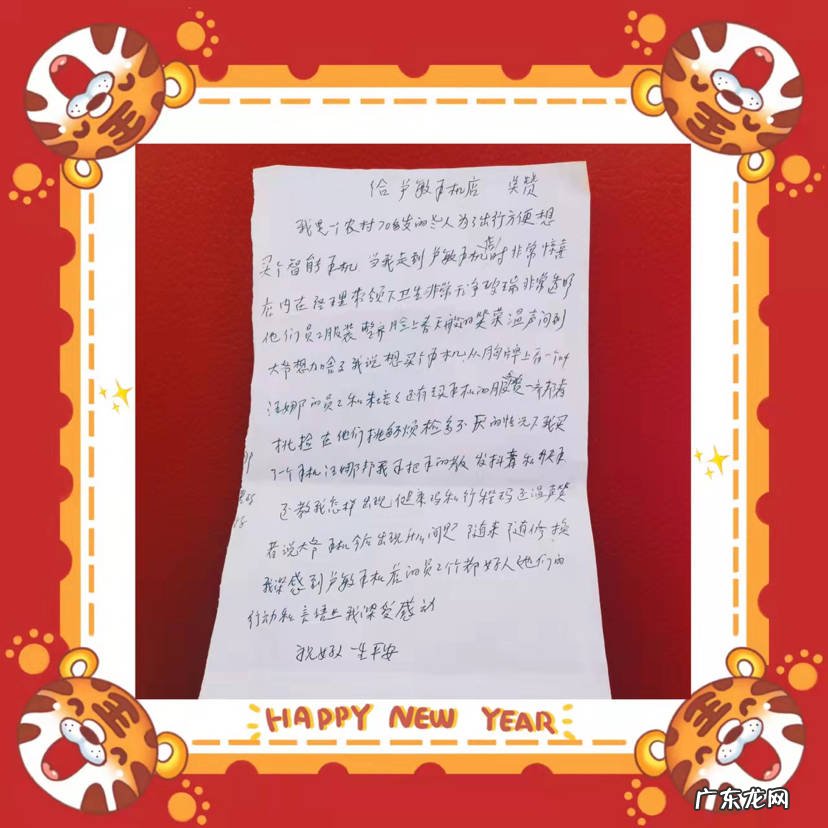 给卢敏手机店 点赞
我是个农村70多岁的老人为了出行方便想
买个智能手机 当我走到卢敏手机店时非常惊喜
店内在经理带领下卫生非常干净玻璃非常透明
他们员工服装整齐脸上春天般的笑容温声问到
大爷想加啥了我说想买个手机,从胸牌上有一个叫
汪娜的员工和朱 还有 手机的服 帮着
挑捡在他们挑 烦捡多不厌的情况下我买
了一个手机汪娜帮我手把手的教 发抖音和快手
还教我怎样出现健康码和行程码还温声
着说大爷手机今后出现什么问题随来随修换
我深感到卢敏手机店的员工个都好人她们的
行动和言语上我深受感动
祝好人一生平安
HAPPY NEW YEAR
广东龙网